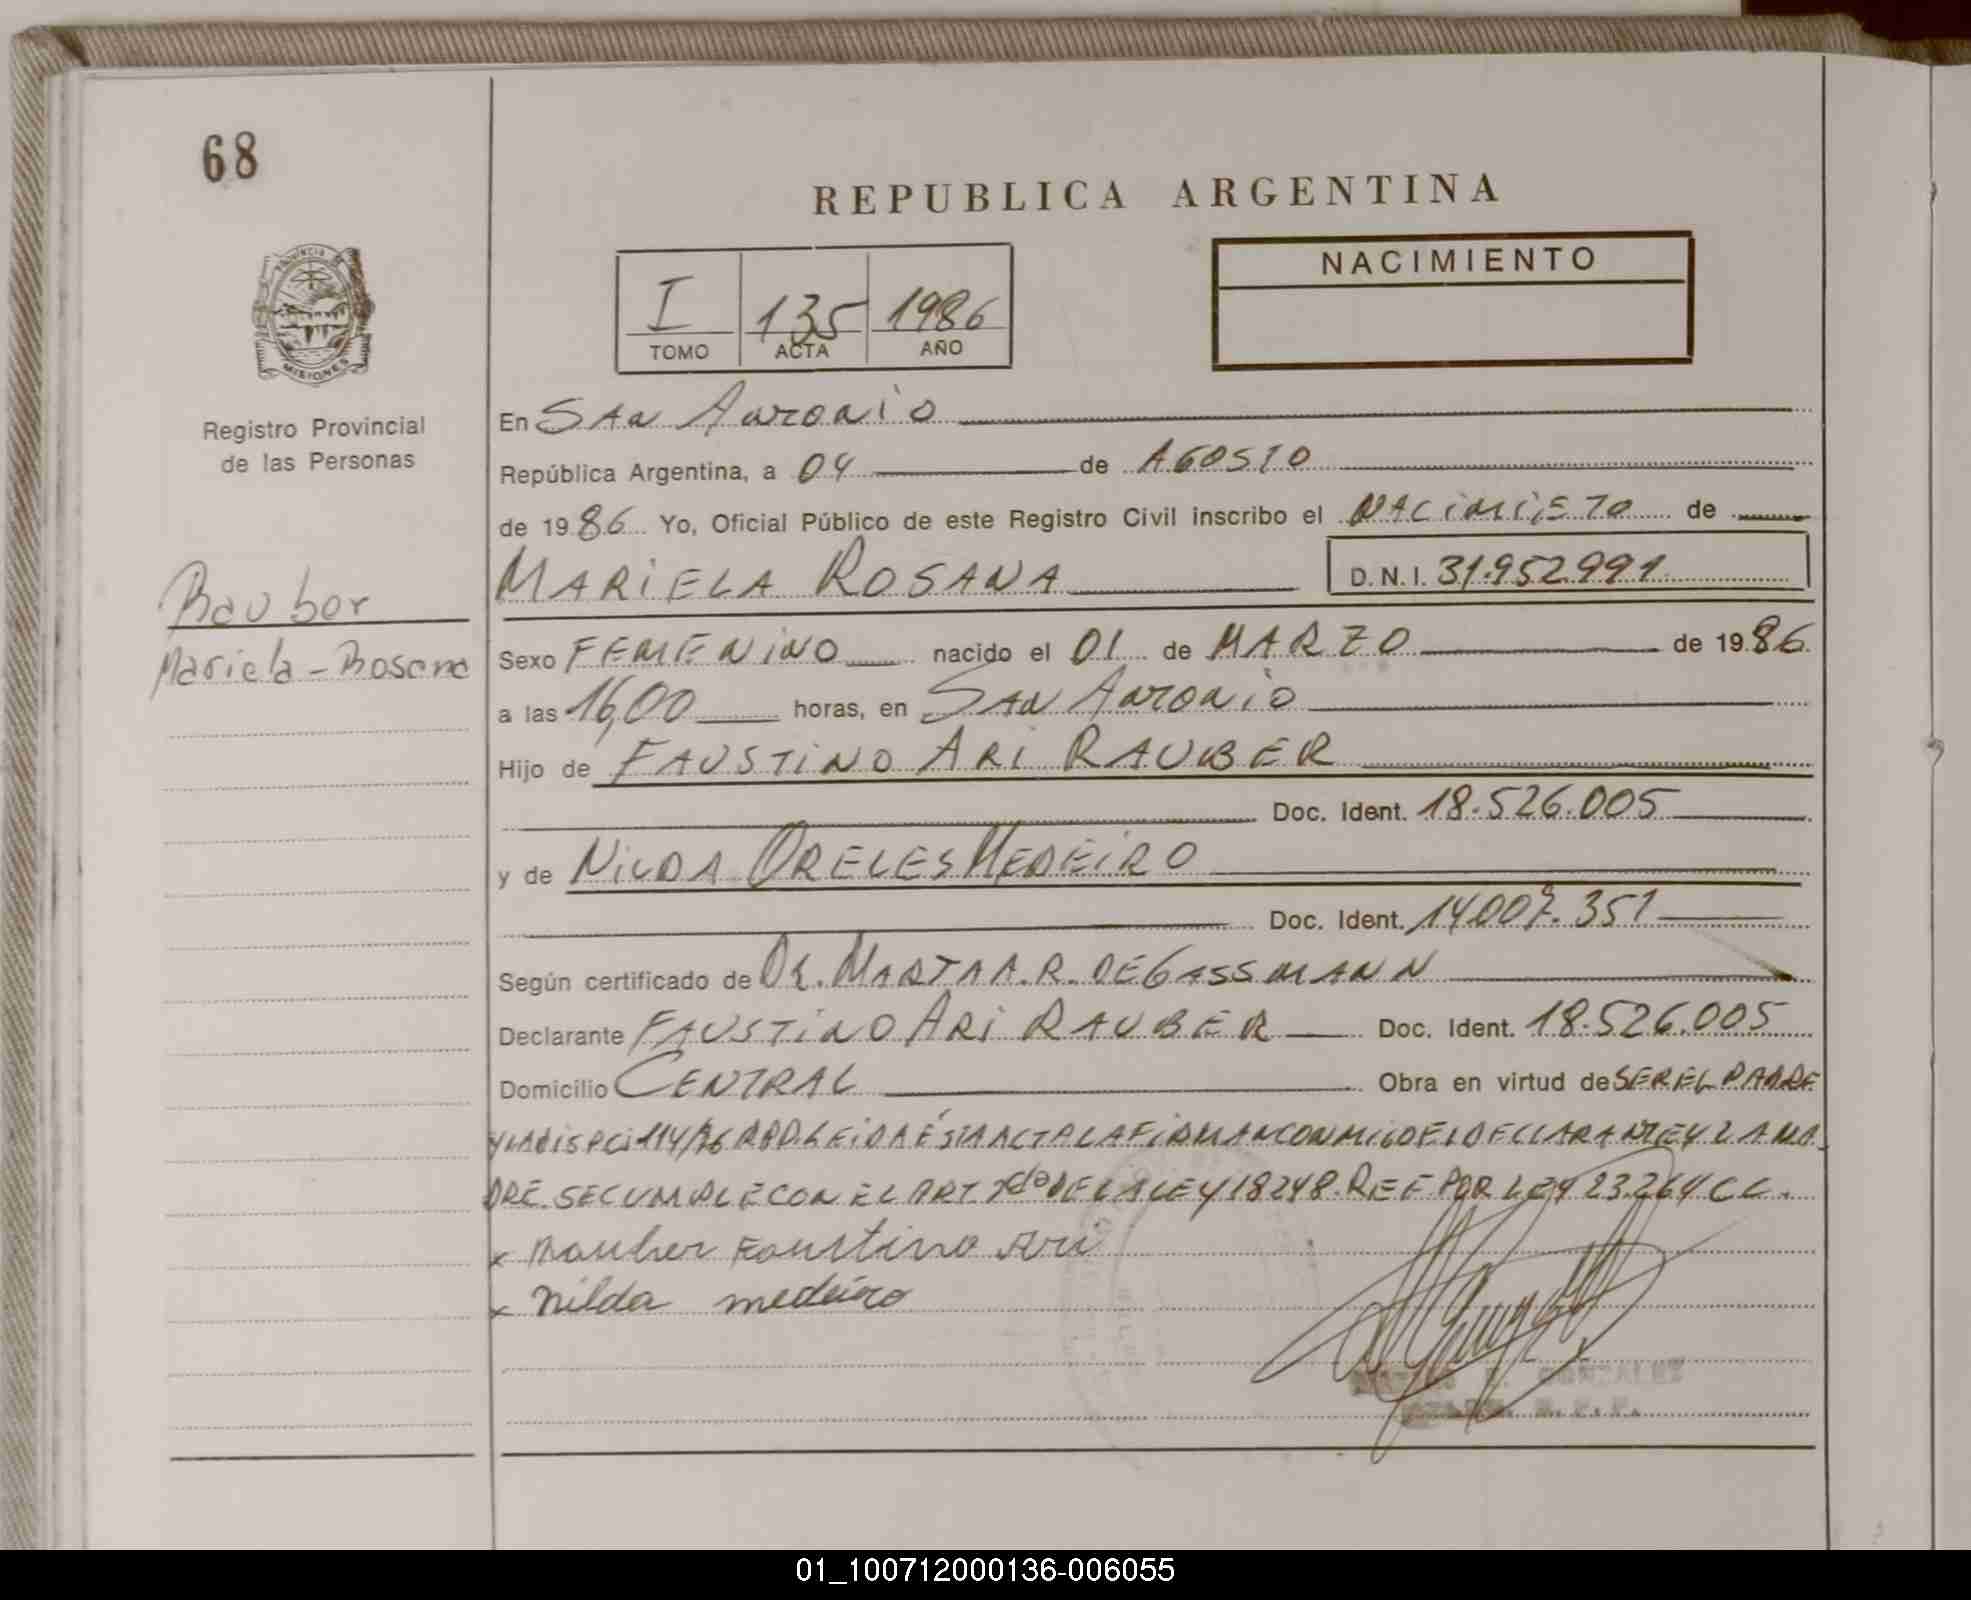 68
REPUBLICA ARGENTINA
PROVINCIA DE
MISIONES
I 135 1986
TOMO ACTA AÑO
NACIMIENTO
Registro Provincial
de las Personas
Rauber
Mariela - Rosana
En SAN ANTONIO
República Argentina, a 04 de AGOSTO
de 1986 Yo, Oficial Público de este Registro Civil inscribo el NACIMIETO de
MARIELA ROSANA D.N.I. 31.952.991
Sexo FEMENINO nacido el 01 de MARZO de 1986
a las 16,00 horas, en SAN ANTONIO
Hijo de FAUSTINO ARI RAUBER
Doc. Ident. 18.526.005
y de NILDA ORELES MEDEIRO
Doc. Ident. 14.007.351
Según certificado de DR. MARTA A.R. DE GASSMANN
Declarante FAUSTINO ARI RAUBER Doc. Ident. 18.526.005
Domicilio CENTRAL Obra en virtud de SER EL PADRE
Y LA DISPCI 114/86 RPP. LEIDA ÉSTA ACTA LA FIRMAN CONMIGO EL DECLARANTE Y LA MA
DRE. SE CUMPLE CON EL ART DE LA LEY 18248. REF POR LEY 23.264 CC.
x Rauber Faustino Ari
x Nilda medeiro
GONZALEZ
R.P.P.
01_100712000136-006055